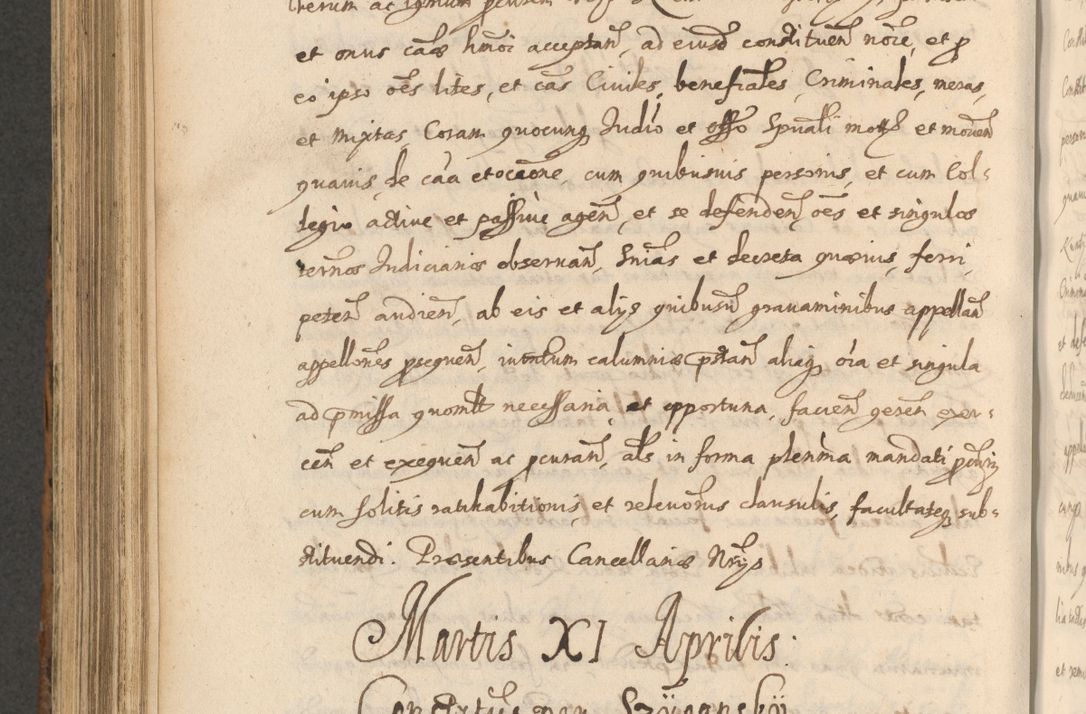 et onus cãe hmõi acceptañ, ad eiusd constitueñ nõie, et p
eo ipso oẽs lites, et cãs Ciuiles, beneficiales, Criminales, meras,
et mixtas, Coram quocunq Judió et offo Spuali motis et moueñ
quauis de cãa et occõne, cum quibusuis personis, et cum Col-
legio actiue et passiue ageñ, et se defendeñ oẽs et singulos
termõs Judiciarios obseruañ, Sniãs et decreta quæuis, ferri,
peteñ audieñ, ab eis et alÿs quibusuis grauaminibus appellañ
appellones psequeñ, iuratum calumniæ pstañ aliaq, oĩa et singula
ad pmissa quomlt necessaria et opportuna, facieñ, gereñ exer-
ceñ et exequeñ ac pcurañ, als in forma plenma mandati
cum solitis ratihabitionis, et releuonis clausulis, facultateq sub-
stituendi. Præsentibus Cancellariæ Nrÿs
Martis XI Aprilis.